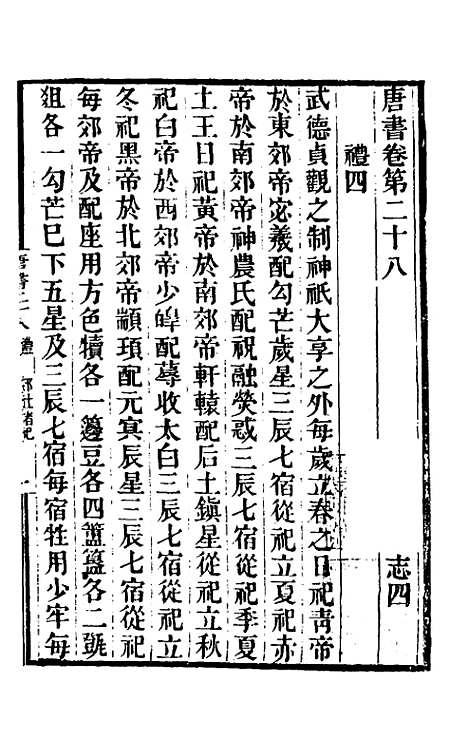 唐書卷第二十八 志四
禮四
武德貞觀之制神祇大享之外每歲立春之日祀靑帝
於東郊帝宓羲配勾芒歲星三辰七宿從祀立夏祀赤
帝於南郊帝神農氏配祝融熒惑三辰七宿從祀季夏
土王日祀黃帝於南郊帝軒轅配后土鎭星從祀立秋
祀白帝於西郊帝少皥配蓐收太白三辰七宿從祀立
冬祀黑帝於北郊帝顓頊配元冥辰星三辰七宿從祀
每郊帝及配座用方色犢各一籩豆各四簠簋各二㽅
俎各一勾芒巳下五星及三辰七宿每宿牲用少牢每
唐書二八 禮 郊社諸祀 一